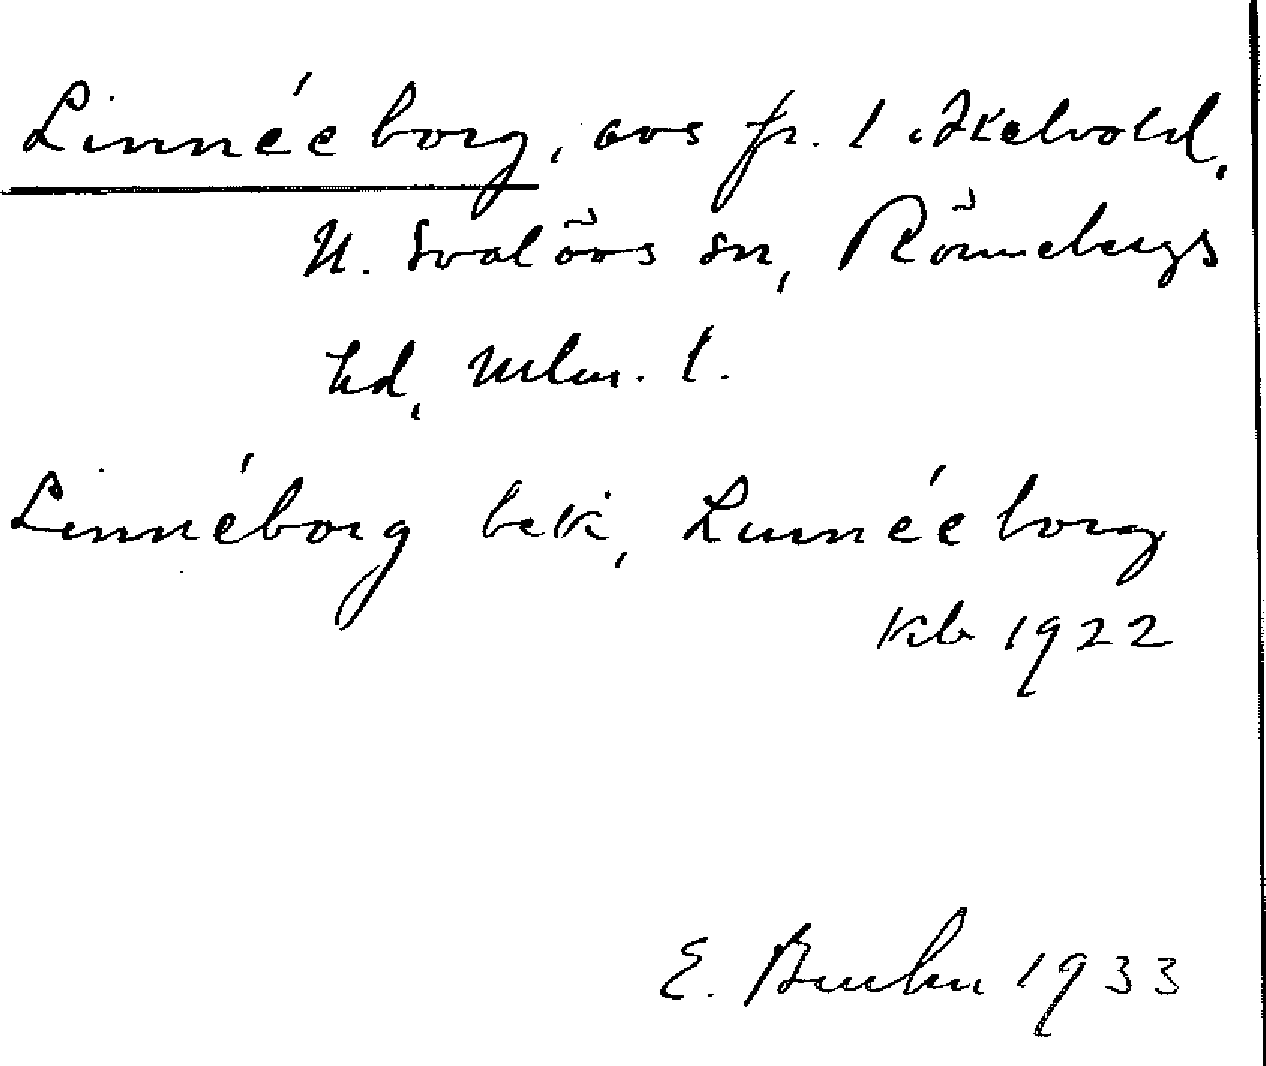 Linnéeborg, avs fr. 1 Skelvold,
N. Svalövs sn, Rönnebergs
hd, Mlm. l.
Linnéborg bek, Linnéeborg
kb 1922
E. 1933